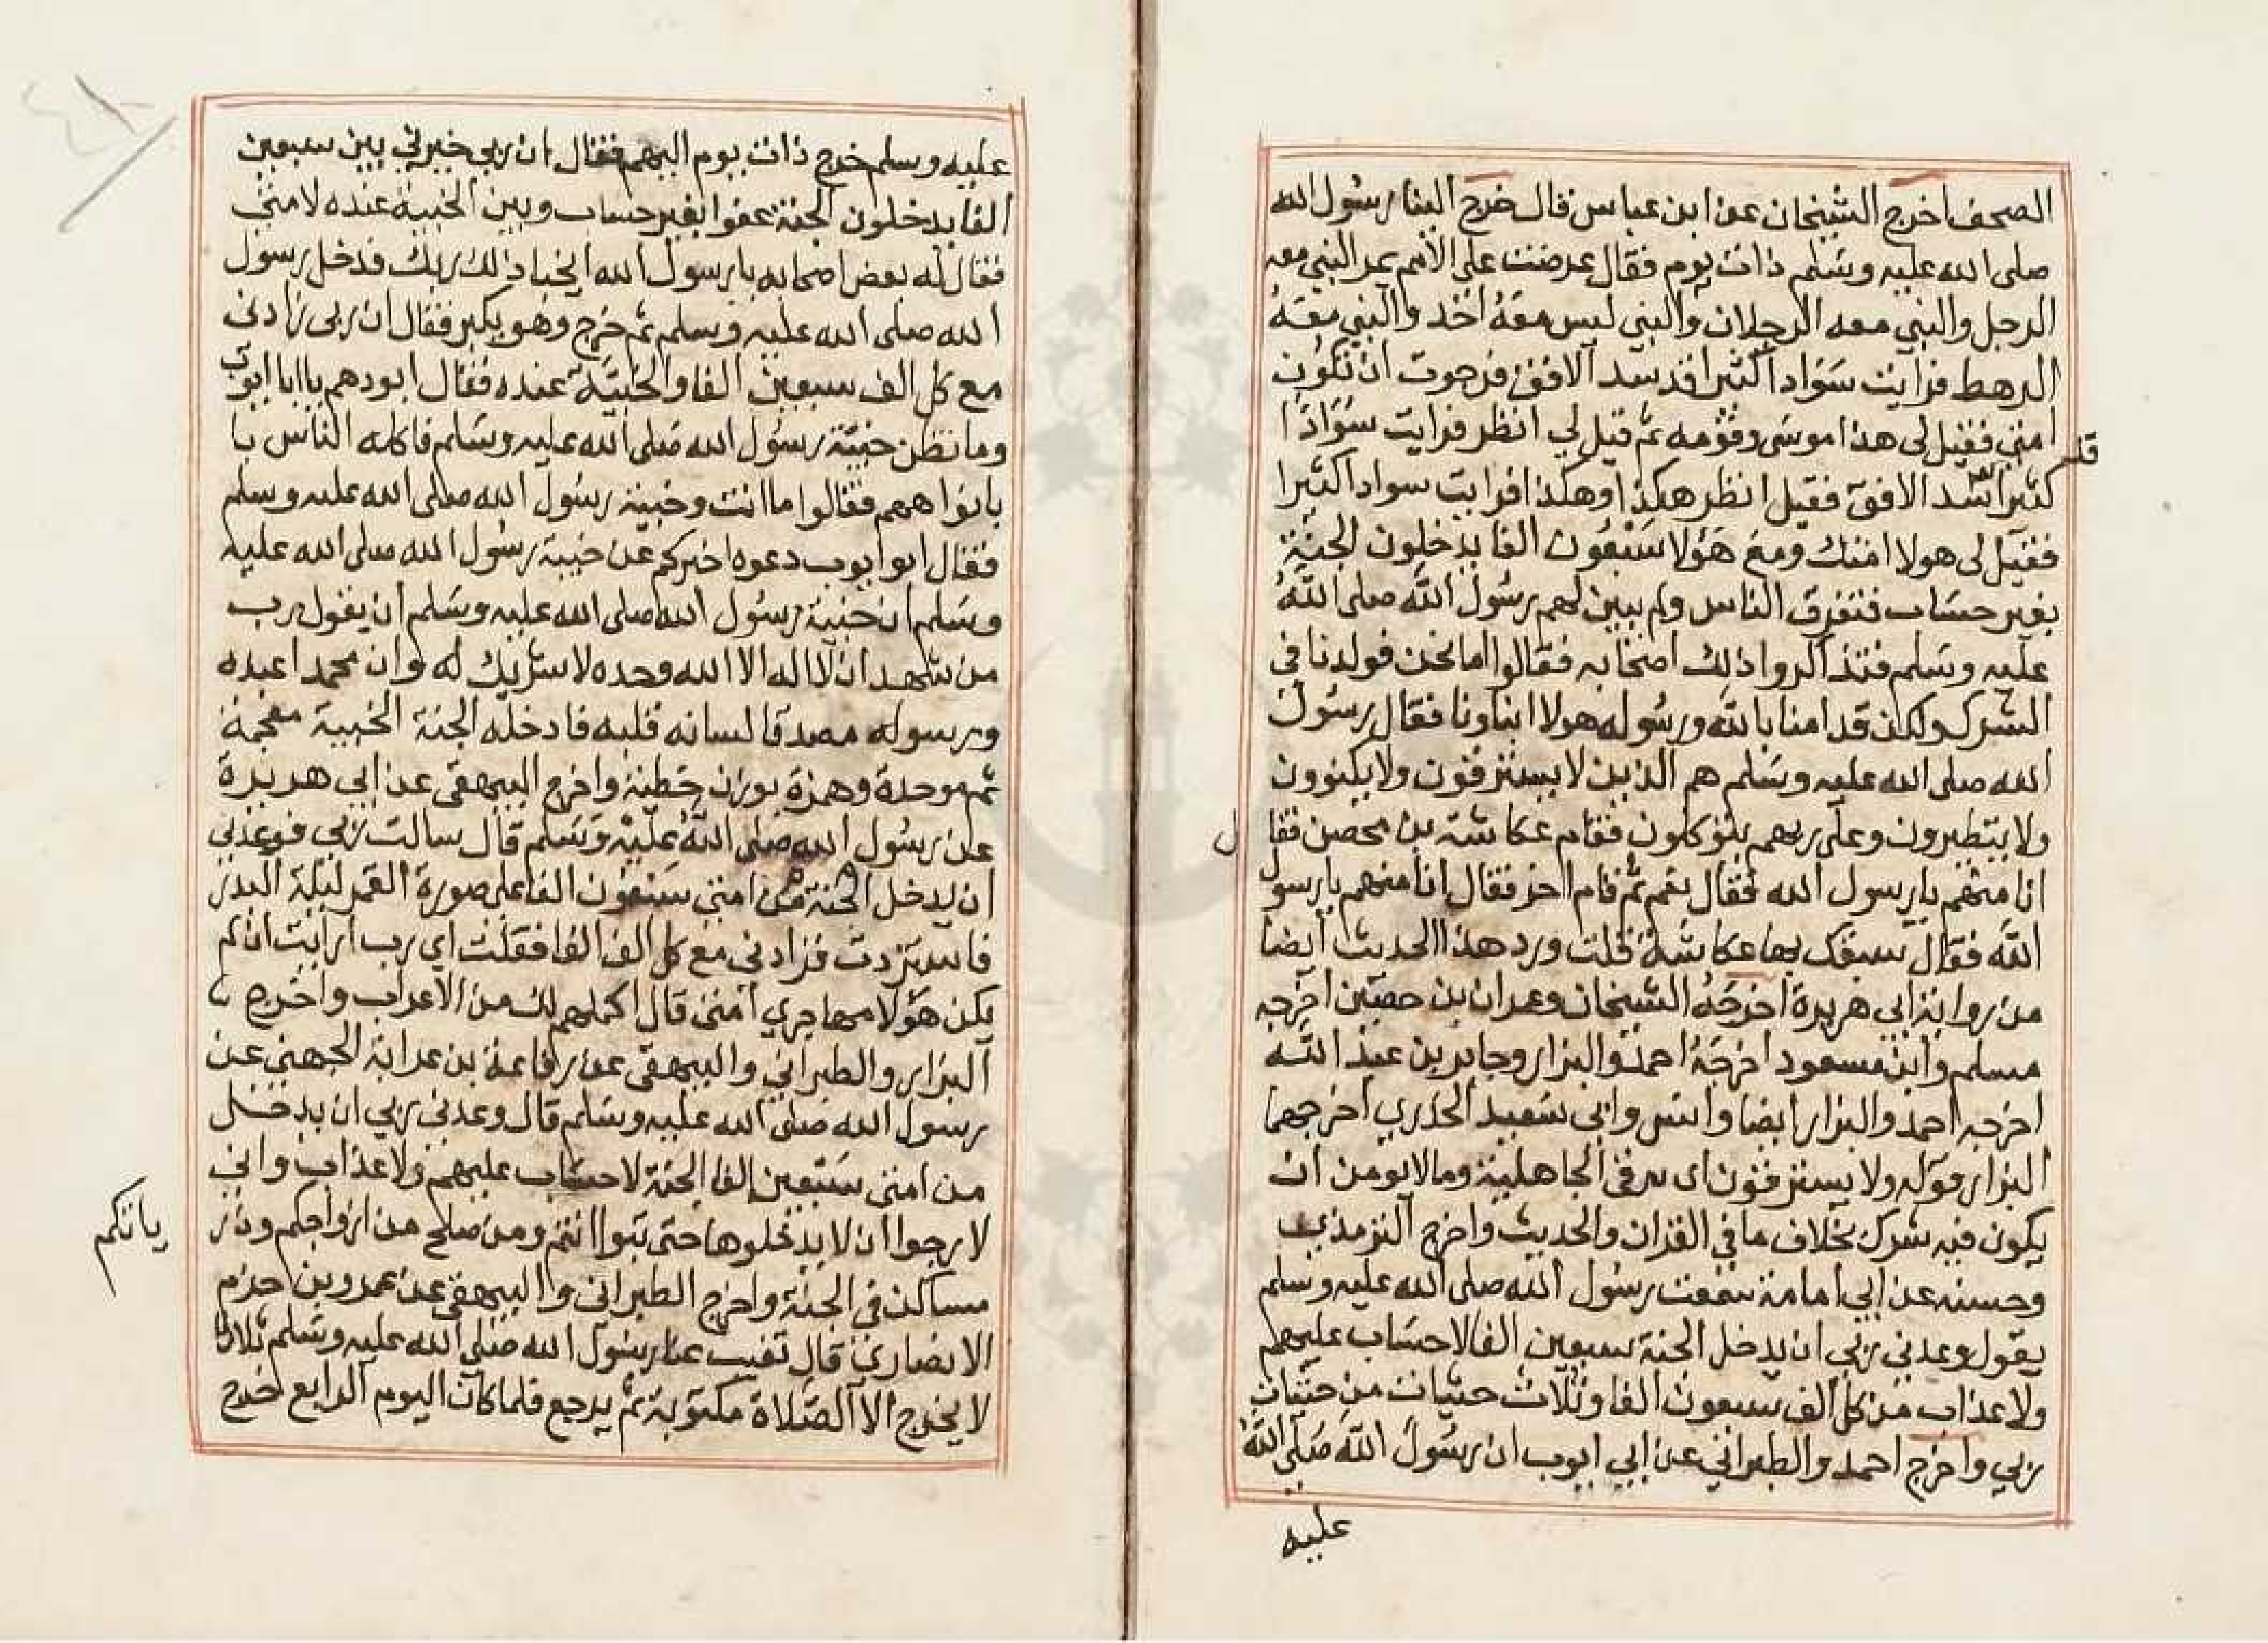 الصحف اخرج الشيخان عن ابن عباس قال خرج الينا رسول الله
صلى الله عليه وسلم ذات يوم فقال عرضت علي الامم يمر النبي معه
الرجل والنبي معه الرجلان والنبي ليس معه احد والنبي معه
الرهط فرايت سوادا كثيرا قد سد الافق فرجوت ان تكون
امتي فقيل لي هذا موسى وقومه ثم قيل لي انظر فرايت سوادا
قد
كثيرا سد الافق فقيل انظر هكذا وهكذا فرايت سوادا كثيرا
فقيل لي هولا امتك ومع هولا سبعون الفا يدخلون الجنة
بغير حساب فتفرق الناس ولم يبين لهم رسول الله صلى الله
عليه وسلم فتذاكروا ذلك اصحابه فقالوا اما نحن فولدنا في
الشرك ولكن قد امنا بالله ورسوله هولا ابناونا فقال رسول
الله صلى الله عليه وسلم هم الذين لا يسترقون ولا يكتوون
ولا يتطيرون وعلى ربهم يتوكلون فقام عكاشة بن محصن فقال
انا منهم يا رسول الله فقال نعم ثم قام اخر فقال انا منهم يا رسول
الله فقال سبقك بها عكاشة قلت ورد هذا الحديث ايضا
من رواية ابي هريرة اخرجه الشيخان وعمران بن حصين اخرجه
مسلم وابن مسعود اخرجه احمد والبزار وجابر بن عبد الله
اخرجه احمد والبزار ايضا وانس وابي سعيد الخدري اخرجهما
البزار قوله ولا يسترقون اي برقى الجاهلية وما لا يومن ان
يكون فيه شرك بخلاف ما في القران والحديث واخرج الترمذي
وحسنه عن ابي امامة سمعت رسول الله صلى الله عليه وسلم
يقول وعدني ربي ان يدخل الجنة سبعين الفا لا حساب عليهم
ولا عذاب مع كل الف سبعون الفا وثلاث حثيات من حثيات
ربي واخرج احمد والطبراني عن ابي ايوب ان رسول الله صلى الله
عليه
عليه وسلم خرج ذات يوم اليهم فقال ان ربي خيرني بين سبعين
الفا يدخلون الجنة عفوا بغير حساب وبين الخبية عنده لامتي
فقال له بعض اصحابه يا رسول الله ايخبا ذلك ربك فدخل رسول
الله صلى الله عليه وسلم ثم خرج وهو يكبر فقال ان ربي زادني
مع كل الف سبعين الفا والخبية عنده فقال ابو رهم يا ابا ايوب
وما تظن خبية رسول الله صلى الله عليه وسلم فاكله الناس با
بافواههم فقالوا ما انت وخبية رسول الله صلى الله عليه وسلم
فقال ابو ايوب دعوه اخبركم عن خبية رسول الله صلى الله عليه
وسلم ان خبية رسول الله صلى الله عليه وسلم ان يقول رب
من شهد ان لا اله الا الله وحده لا شريك له وان محمدا عبده
ورسوله مصدقا لسانه قلبه فادخله الجنة الخبية معجمة
ثم موحدة وهمزة بوزن خطية واخرج البيهقي عن ابي هريرة
عن رسول الله صلى الله عليه وسلم قال سالت ربي فوعدني
ان يدخل الجنة من امتي سبعون الفا على صورة القمر ليلة البدر
فاستزدت فزادني مع كل الف الفا فقلت اي رب ارايت ان لم
يكن هولا مهاجري امتي قال اكملهم لك من الاعراب واخرج
البزار والطبراني والبيهقي عن رفاعة بن عرابة الجهني عن
رسول الله صلى الله عليه وسلم قال وعدني ربي ان يدخل
من امتي سبعين الفا الجنة لا حساب عليهم ولا عذاب واني
لارجوا ان لا يدخلوها حتى تبوا انتم ومن صلح من ازواجكم وذر
ياتكم
مساكن في الجنة واخرج الطبراني والبيهقي عن عمرو بن حزم
الانصاري قال تغيب عنا رسول الله صلى الله عليه وسلم ثلاثا
لا يخرج الا الصلاة مكتوبة ثم يرجع فلما كان اليوم الرابع خرج